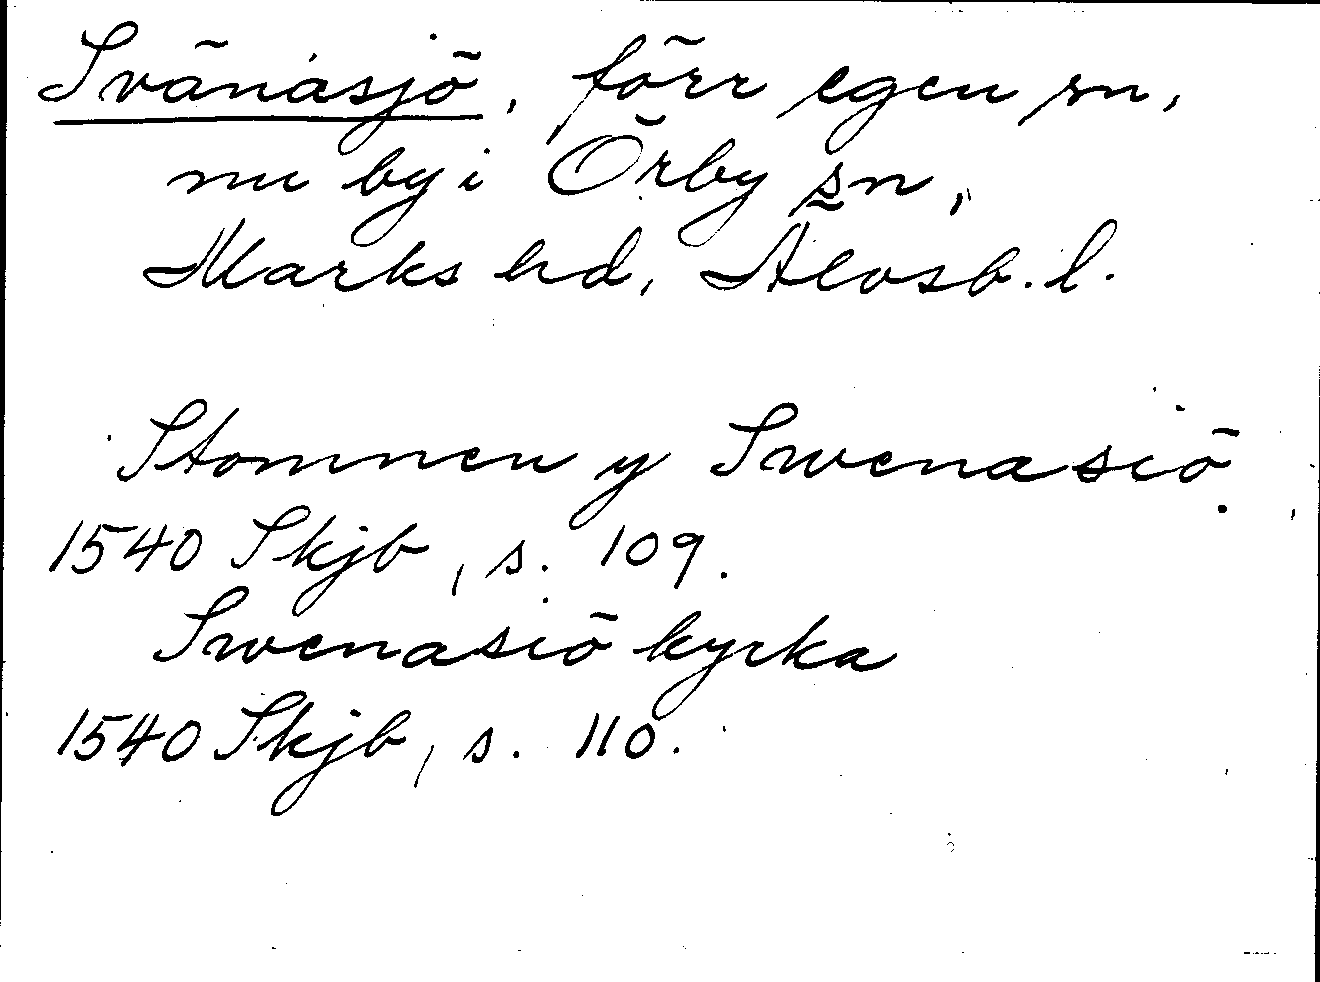 Svänasjö, förr egen sn,
nu by i Örby sn,
Marks hd, Älvsb. l.
Stommen y Swenasiö.
1540 Skjb, s. 109.
Swenasiö kyrka
1540 Skjb, s. 110.